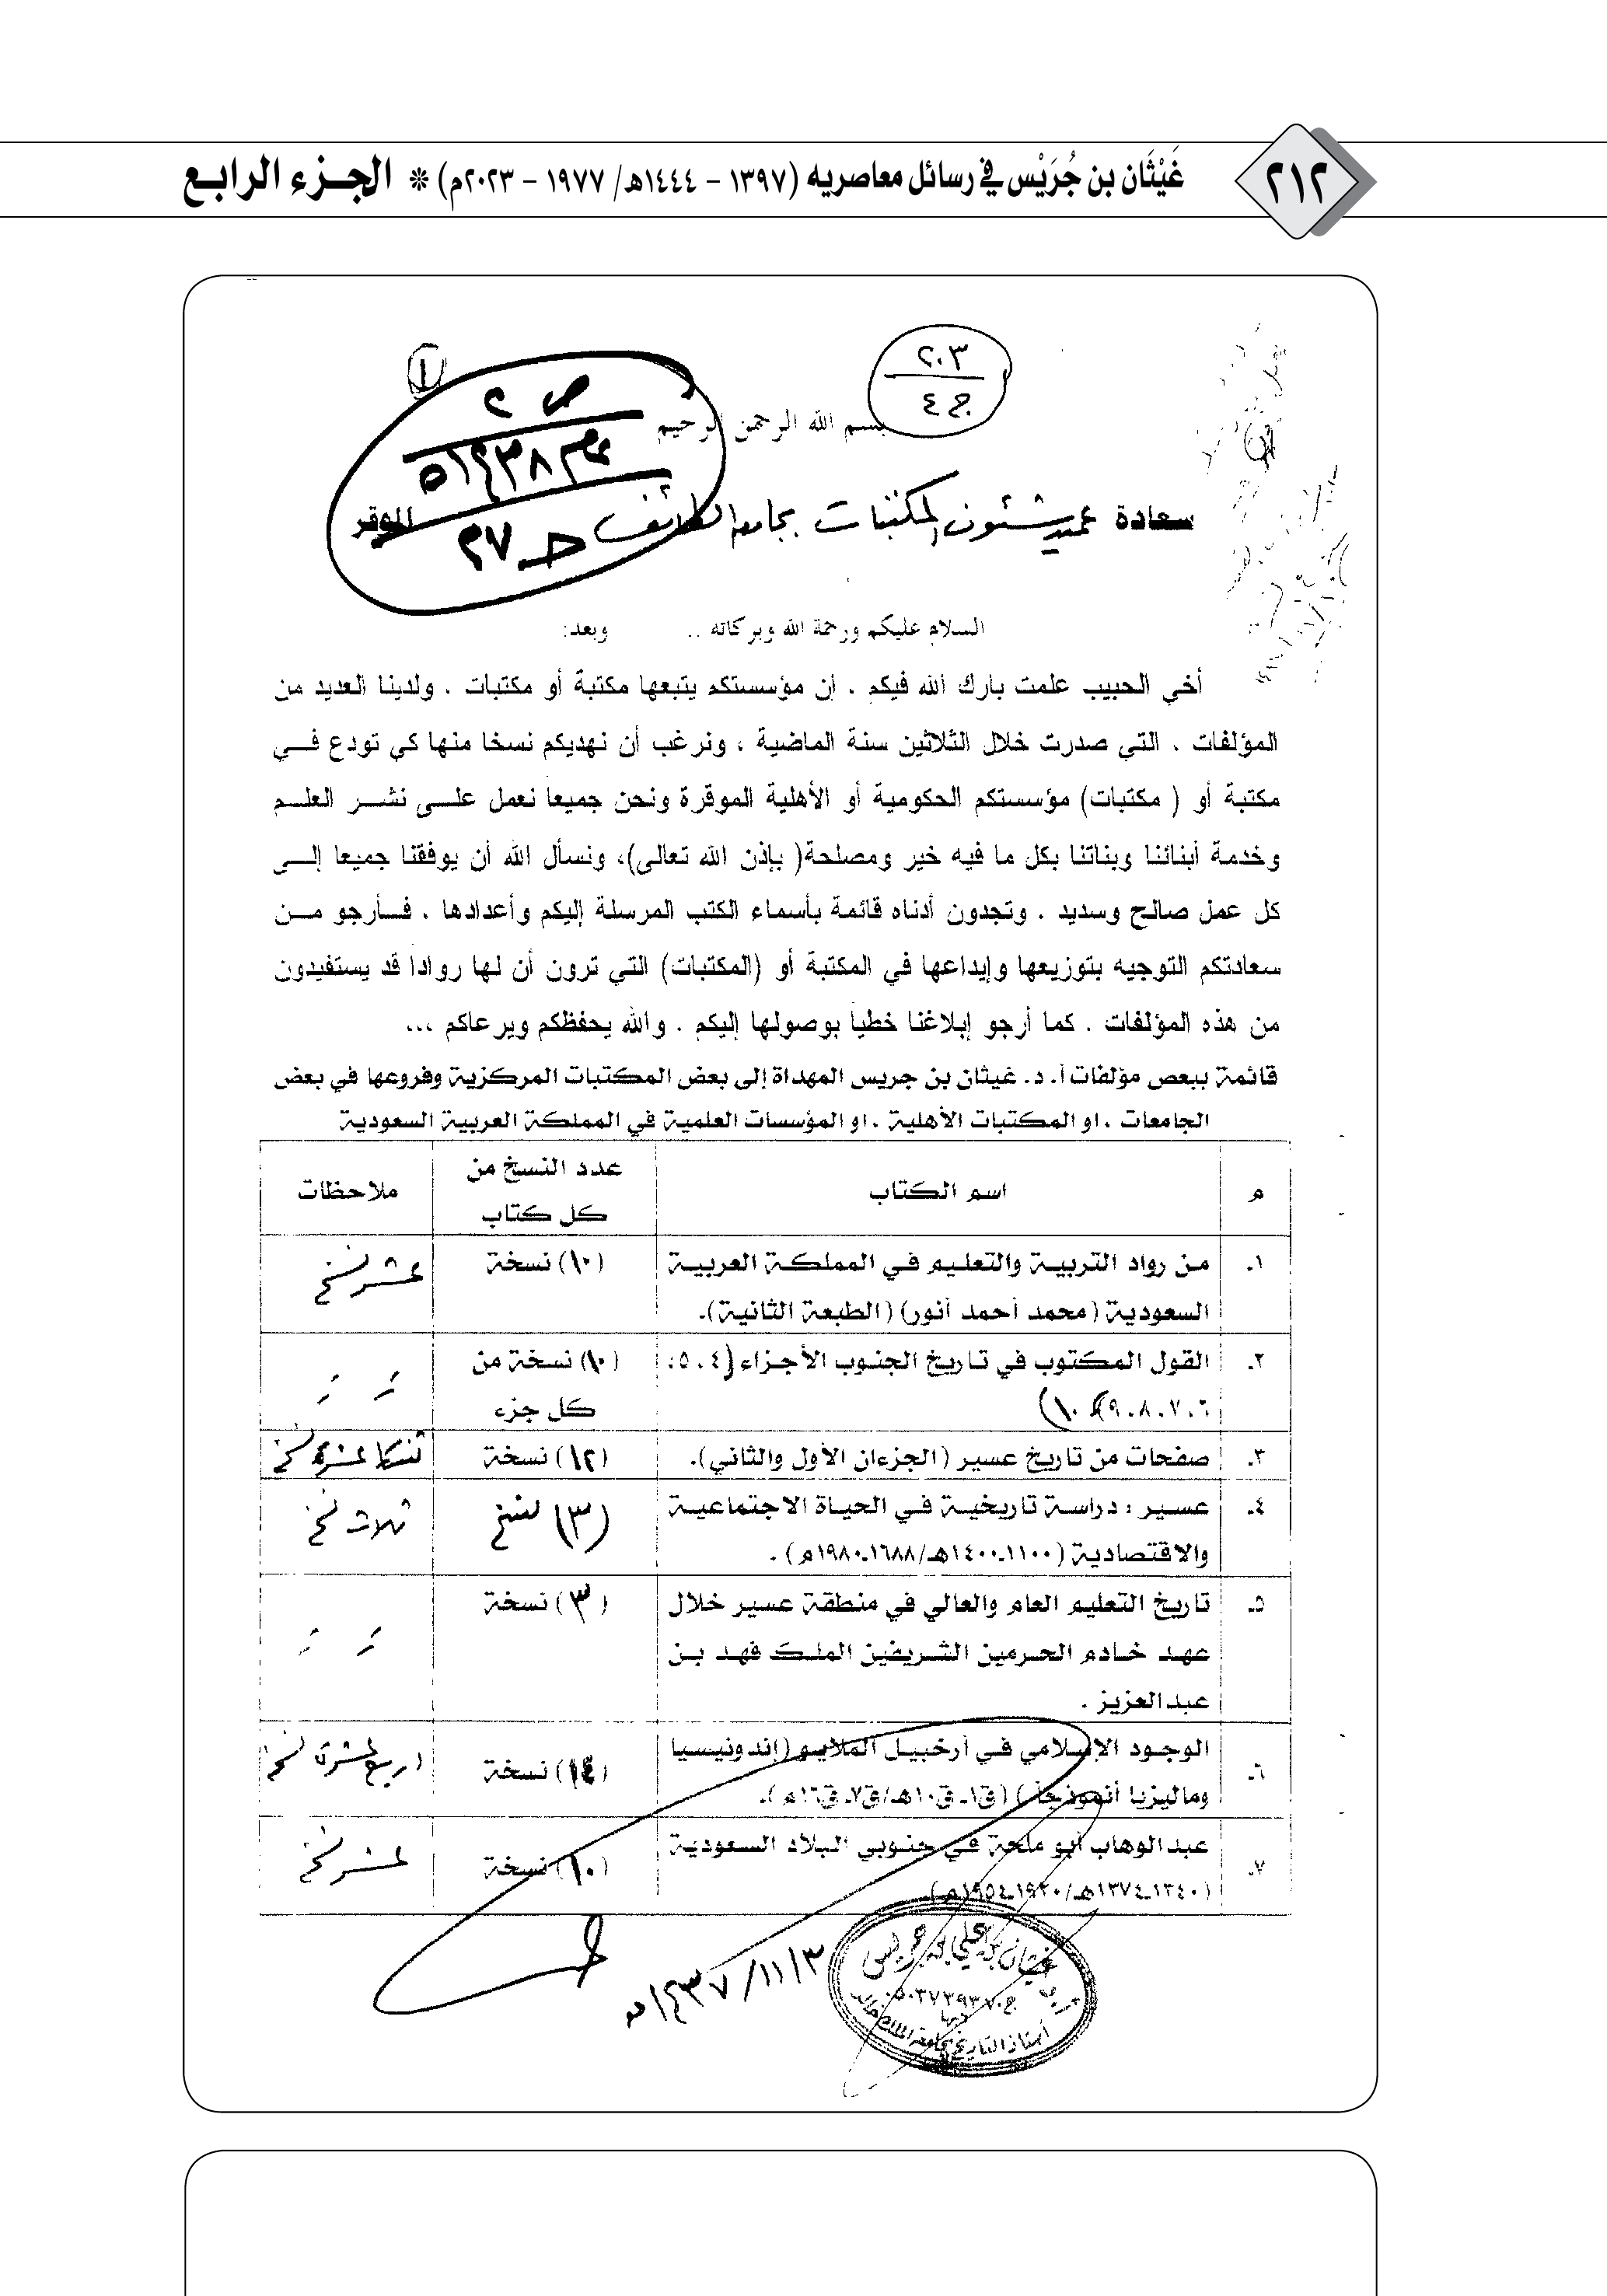 ٢١٢
غَيْثَان بن جُرَيْس في رسائل معاصريه (١٣٩٧ - ١٤٤٤هـ/ ١٩٧٧ - ٢٠٢٣م) * الجزء الرابع
٢٠٣
ج ٤
١
ص ٢
١٤٣٨
ج ٢٧
بسم الله الرحمن الرحيم
سعادة عميد شئون المكتبات بجامعة الطائف الموقر
السلام عليكم ورحمة الله وبركاته .. وبعد:
أخي الحبيب علمت بارك الله فيكم . إن مؤسستكم يتبعها مكتبة أو مكتبات . ولدينا العديد من
المؤلفات . التي صدرت خلال الثلاثين سنة الماضية ، ونرغب أن نهديكم نسخا منها كي تودع فــي
مكتبة أو ( مكتبات) مؤسستكم الحكومية أو الأهلية الموقرة ونحن جميعا نعمل علــى نشــر العلــم
وخدمة أبنائنا وبناتنا بكل ما فيه خير ومصلحة( بإذن الله تعالى)، ونسأل الله أن يوفقنا جميعا إلــى
كل عمل صالح وسديد . وتجدون أدناه قائمة بأسماء الكتب المرسلة إليكم وأعدادها . فــأرجو مــن
سعادتكم التوجيه بتوزيعها وإيداعها في المكتبة أو (المكتبات) التي ترون أن لها رواداً قد يستفيدون
من هذه المؤلفات . كما أرجو إبلاغنا خطياً بوصولها إليكم . والله يحفظكم ويرعاكم ...
قائمة ببعص مؤلفات أ. د. غيثان بن جريس المهداة إلى بعض المكتبات المركزية وفروعها في بعض
الجامعات ، او المكتبات الأهلية ، او المؤسسات العلمية في المملكة العربية السعودية
م اسم الكتاب عدد النسخ من كل كتاب ملاحظات
١. من رواد التربية والتعليم في المملكة العربية (١٠) نسخة عشر نسخ
السعودية (محمد أحمد أنور) (الطبعة الثانية).
٢. القول المكتوب في تاريخ الجنوب الأجزاء (٤ ، ٥ ، (١٠) نسخة من
٦ ، ٧ ، ٨ ، ٩ ، ١٠) كل جزء
٣. صفحات من تاريخ عسير (الجزءان الأول والثاني). (١٢) نسخة
٤. عسير : دراسة تاريخية في الحياة الاجتماعية (٣) نسخ ثلاث نسخ
والاقتصادية (١١٠٠ـ١٤٠٠هـ/١٦٨٨ـ١٩٨٠م) .
٥. تاريخ التعليم العام والعالي في منطقة عسير خلال (٣) نسخة
عهد خادم الحرمين الشريفين الملك فهد بن
عبدالعزيز .
٦. الوجود الإسلامي في أرخبيل الملايو (إندونيسيا (١٤) نسخة اربع عشرة نسخة
وماليزيا أنموذجاً) (ق١ـ ق١٠هـ/ق٧ـ ق١٦م).
٧. عبدالوهاب أبو ملحة في جنوبي البلاد السعودية (١٠) نسخة عشر نسخ
(١٣٤٠ـ١٣٧٤هـ/١٩٢٠ـ١٩٥٤م).
١٤٣٧/١١/٣هـ
غيثان بن علي بن جريس
أستاذ التاريخ بجامعة الملك خالد